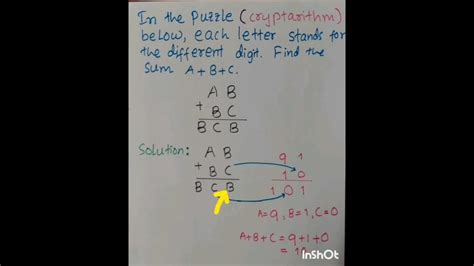 In the Puzzle (cryptarithm)
below, each letter stands for
the different digit. Find the
sum A+B+C.
A B
+ B C
B C B
Solution: A B
+ B C
B C B
9 1
1 0
1 0 1
A=9, B=1, C=0
A+B+C = 9+1+0
InShOt